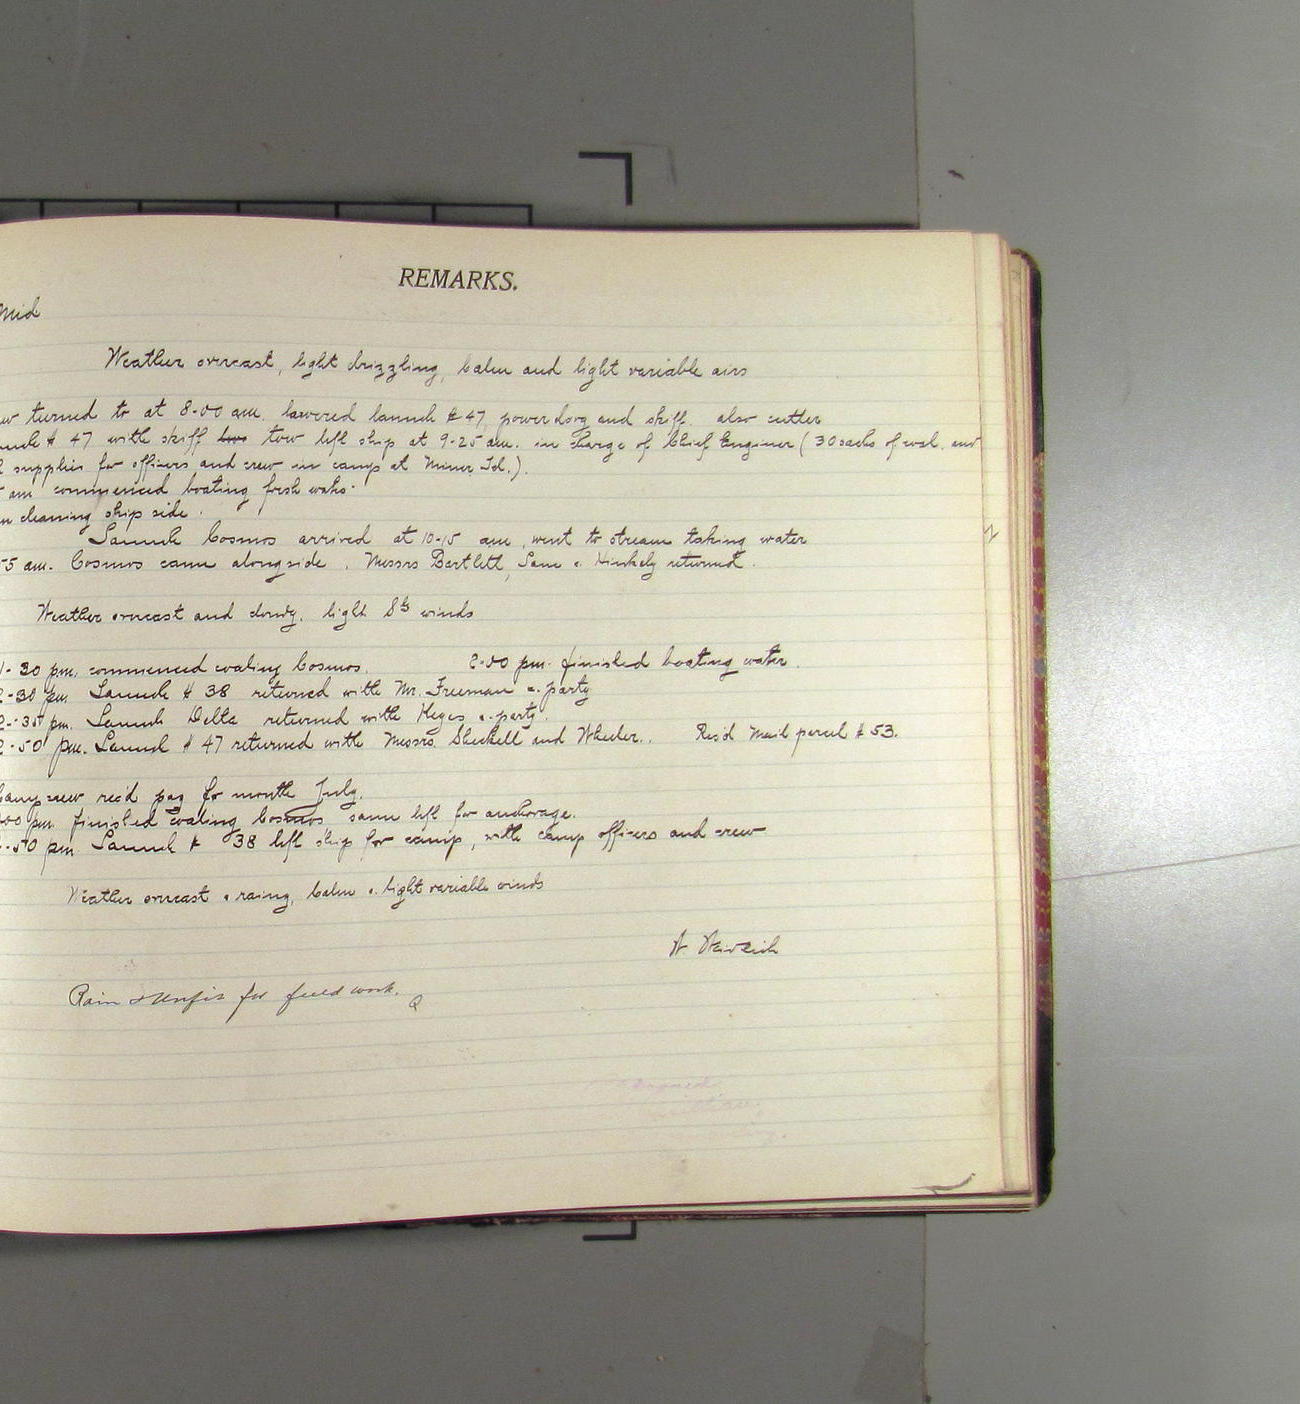 REMARKS.
Mid
Weather overcast, light drizzling, calm and light variable airs
turned to at 8-00 am. lowered launch # 47, powerdory and skiff. also cutter
# 47 with skiff tow left ship at 9-25 am. in charge of Chief Engineer (30 sacks of coal. and
supplies for officers and crew in camp at Miner Isl.).
am commenced boating fresh water.
cleaning ship side.
Launch Cosmos arrived at 10-15 am, went to stream taking water
5 am. Cosmos came alongside. Messrs Bartlett, & Hinkely returned.
Weather overcast and cloudy. light winds
1-30 pm. commenced coaling Cosmos. 2-00 pm. finished boating water.
2-30 pm. Launch # 38 returned with Mr. Freeman & party
pm. Launch Delta returned with Keyes & party.
2-50 pm. Launch # 47 returned with Messrs. Sheckell and Wheeler.. Rec'd Mail parcel # 53.
Camp crew rec'd pay for month July.
00 pm. finished coaling Cosmos same left for anchorage.
50 pm Launch # 38 left ship for camp, with camp officers and crew
Weather overcast & raing, calm & light variable winds
Rain & unfit for field work.